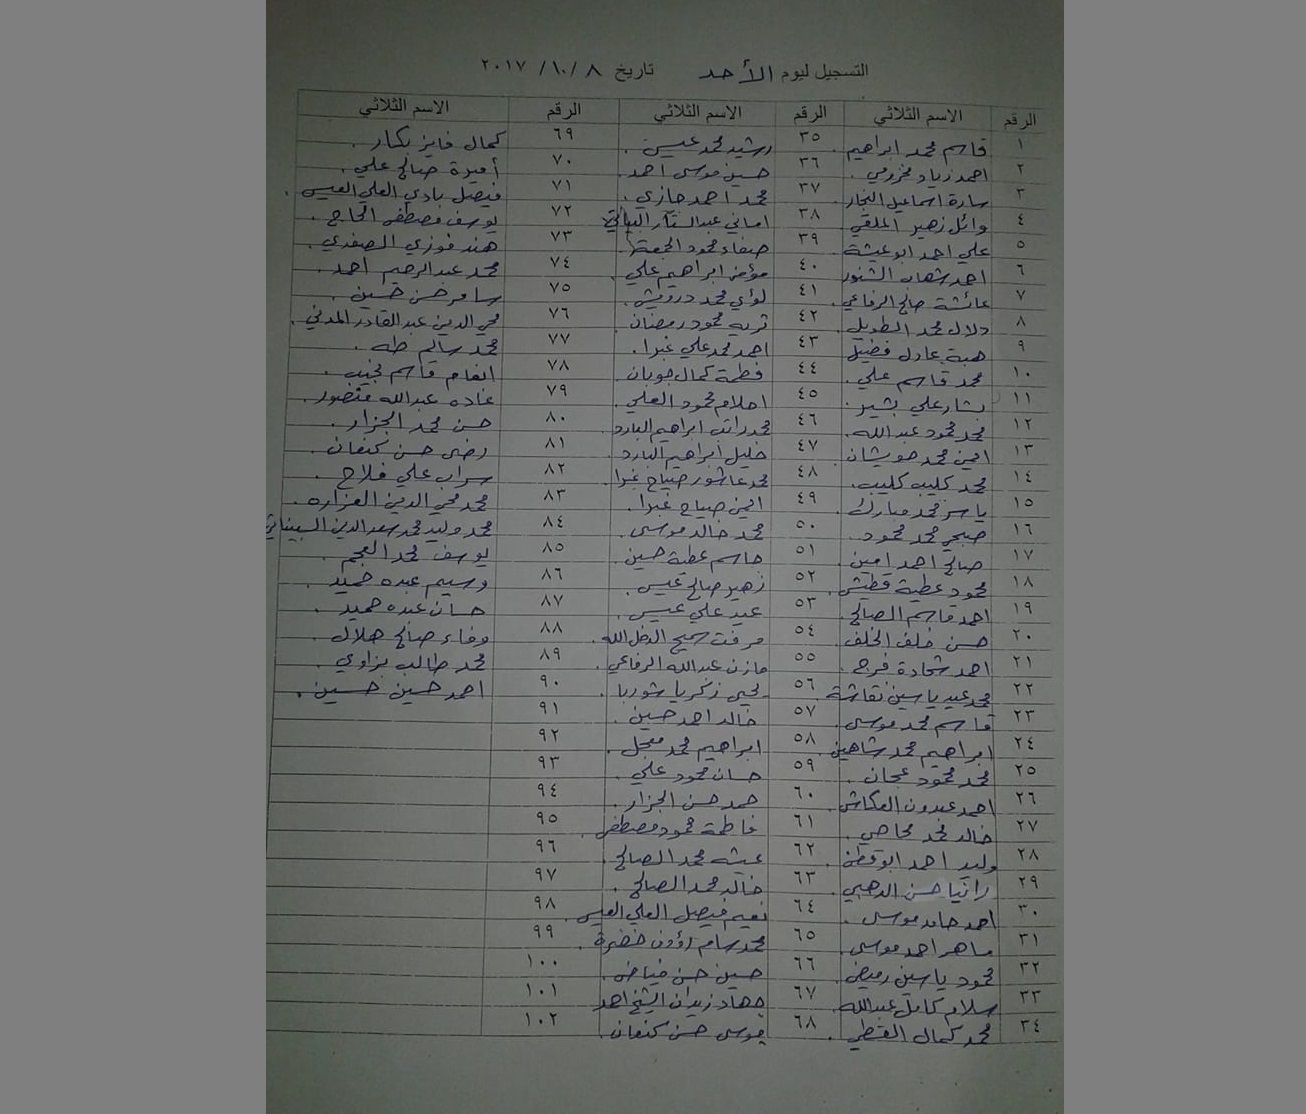 التسجيل ليوم الأحد تاريخ ٨ /١٠/ ٢٠١٧
الرقم الاسم الثلاثي الرقم الاسم الثلاثي الرقم الاسم الثلاثي
١ قاسم محمد ابراهيم . ٣٥ رشيد محمد عيسى . ٦٩ كمال فايز بكار .
٢ احمد زياد مخزومي . ٣٦ حسين موسى احمد . ٧٠ أميرة صالح علي .
٣ سارة اسماعيل النجار . ٣٧ محمد احمد حازي . ٧١ فيصل بادي العلي العيسى .
٤ وائل زهير الملقي . ٣٨ اماني عبد الستار البياتي ٧٢ يوسف مصطفى الحاج .
٥ علي احمد ابو عيشة ٣٩ صفاء محمود الجمعة ٧٣ هند فوزي الصفدي .
٦ احمد الشنور ٤٠ ابراهيم علي . ٧٤ محمد عبد الرحيم احمد .
٧ عائشة صالح الرفاعي . ٤١ لؤي محمد درويش . ٧٥ سامر حسن حسين .
٨ دلال محمد الطويل . ٤٢ محمود رمضان ٧٦ محي الدين عبد القادر المدني .
٩ هبة عادل فضيل ٤٣ احمد محمد علي غبرا . ٧٧ محمد سالم طه .
١٠ محمد قاسم علي . ٤٤ فطمة كمال جوبان . ٧٨ انعام قاسم نجيب .
١١ بشار علي بشير . ٤٥ احلام محمود العلي . ٧٩ غاده عبدالله منصور .
١٢ محمد محمود عبد الله . ٤٦ محمد راتب ابراهيم البارد . ٨٠ حسن محمد الجزار .
١٣ امين محمد حويشان . ٤٧ خليل ابراهيم البارد ٨١ رضى حسن كنعان .
١٤ محمد كليب كليب . ٤٨ محمد عاشور صياح غبرا . ٨٢ سراب علي فلاح .
١٥ ياسر محمد مبارك . ٤٩ ايمن صياح غبرا . ٨٣ محمد محي الدين العزاره .
١٦ صبحي محمد محمود . ٥٠ محمد خالد موسى . ٨٤ محمد وليد محمد سعد الدين
١٧ صالح احمد امين . ٥١ جاسم عطية حسين . ٨٥ يوسف محمد العجم .
١٨ محمود عطية قطيش . ٥٢ زهير صالح عيسى . ٨٦ وسيم عبده حميد .
١٩ احمد قاسم الصالح . ٥٣ عيد علي عيسى . ٨٧ حسان عبده حميد .
٢٠ حسن خلف الخلف . ٥٤ مرفت سميح الدخل الله . ٨٨ وفاء صالح هلال .
٢١ احمد شحادة فرج . ٥٥ مازن عبدالله الرفاعي . ٨٩ محمد طالب بزاوي .
٢٢ محمد عيد ياسين نقاشة ٥٦ يحيى زكريا شوربا . ٩٠ احمد حسين حسين .
٢٣ قاسم محمد موسى . ٥٧ خالد احمد حسين . ٩١
٢٤ ابراهيم محمد شاهين . ٥٨ ابراهيم محمد معجل . ٩٢
٢٥ محمد محمود عجان . ٥٩ حسان محمود علي . ٩٣
٢٦ احمد عبدون العكاش . ٦٠ حمد حسن الجزار . ٩٤
٢٧ خالد محمد محاصي . ٦١ فاطمة محمود مصطفى . ٩٥
٢٨ وليد احمد ابو قطن . ٦٢ عيشه محمد الصالح . ٩٦
٢٩ رانيا حسن الدهبي . ٦٣ خالد محمد الصالح . ٩٧
٣٠ احمد حامد موسى . ٦٤ نعيم فيصل العلي العيسى . ٩٨
٣١ ماهر احمد موسى . ٦٥ محمد سامر رؤوف خضرة . ٩٩
٣٢ محمود ياسين رميض . ٦٦ حسين حسن فياض . ١٠٠
٣٣ سلام كامل عبدالله ٦٧ جهاد زيدان الشيخ احمد ١٠١
٣٤ محمد كمال القطي . ٦٨ موسى حسن كنعان . ١٠٢